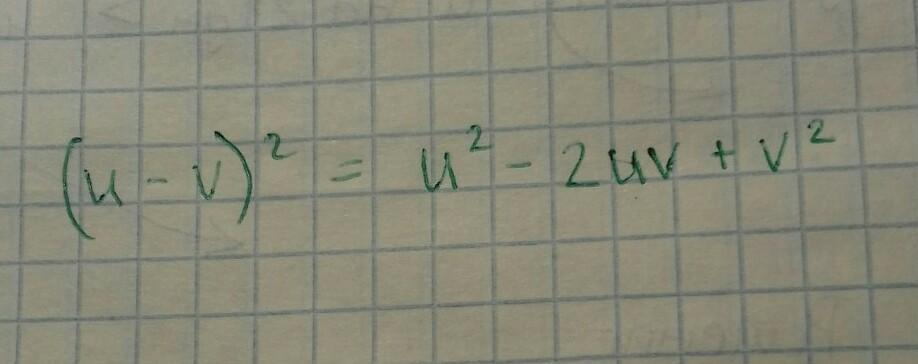 (u - v)² = u² - 2uv + v²